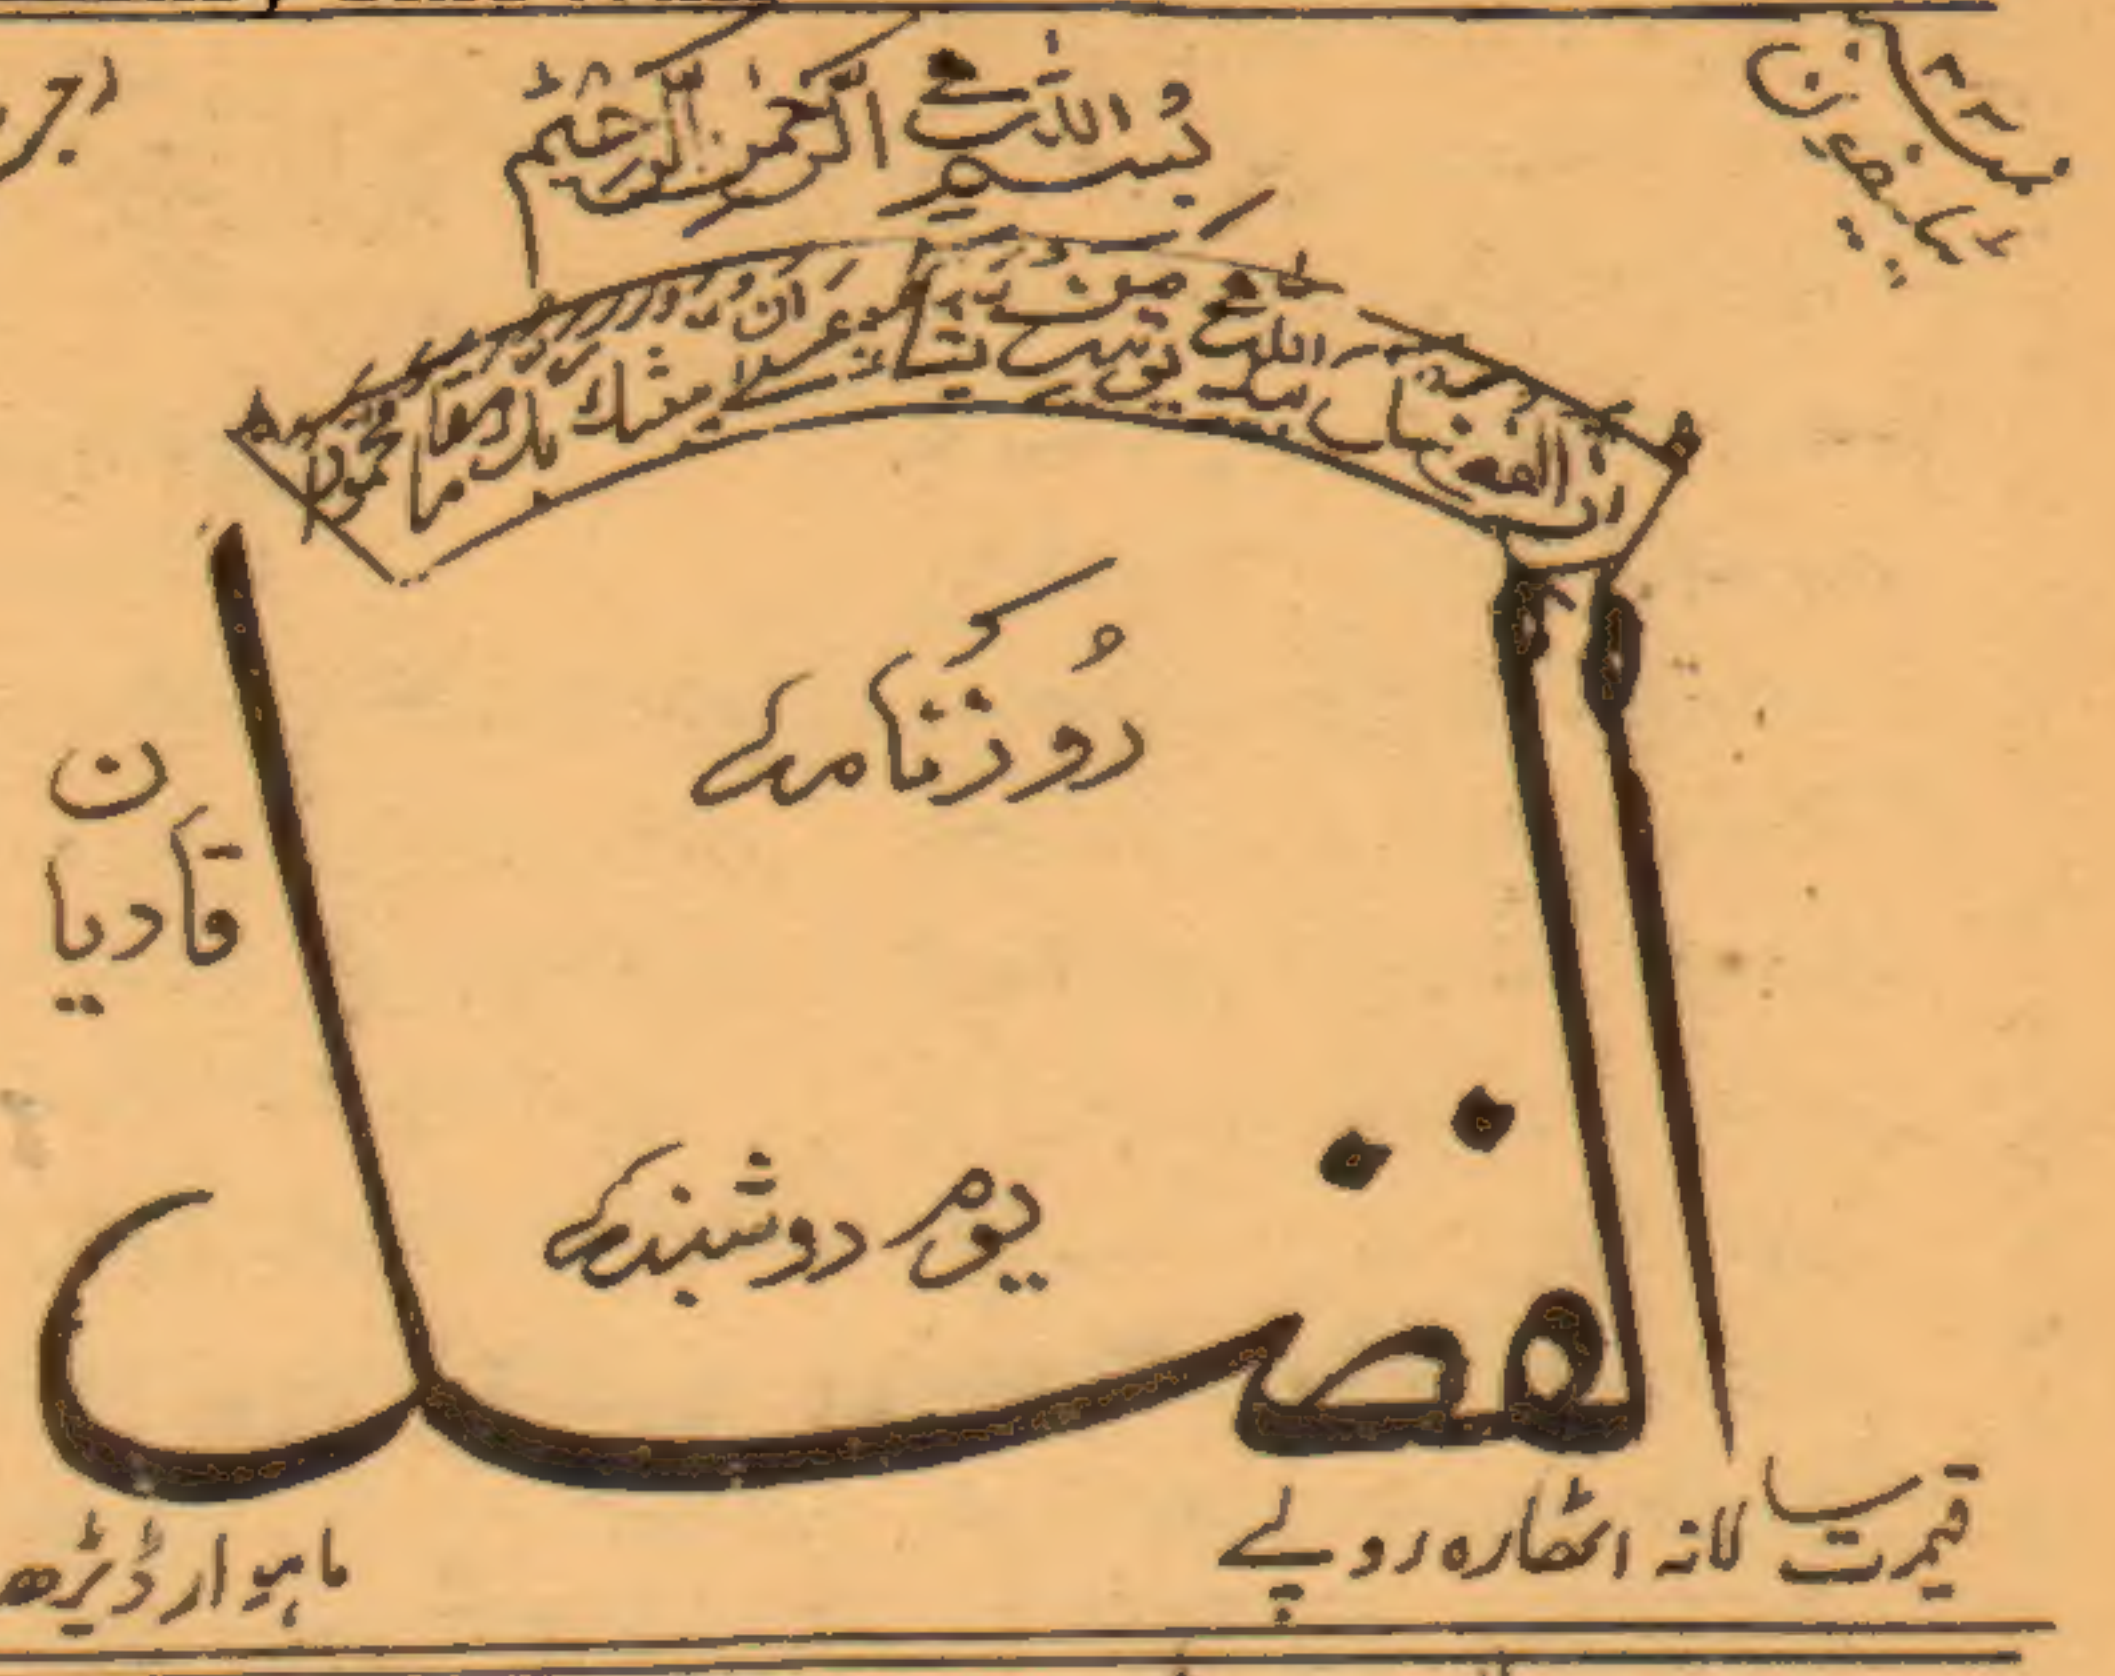 ٹیلیفون نمبر ۳۳
بِسْمِ اللّٰہِ الرَّحْمٰنِ الرَّحِیْمِ
ان الفضل بید اللہ یؤتیہ من یشاء عسیٰ ان یبعثک ربک مقاما محمودا
رُوزنَامہ
الفضل
قادیان
یوم دوشنبہ
قیمت سالانہ اٹھارہ روپے
ماہوار ڈیڑھ